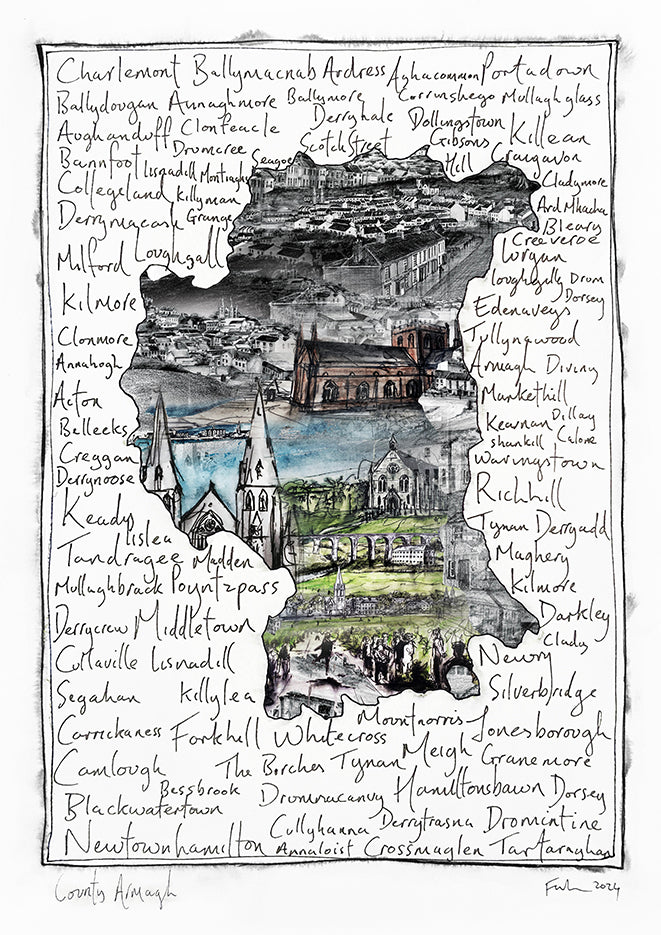 Charlemont Ballymacnab Ardress Aghacommon Portadown
Ballydougan Annaghmore Ballymore Corrinshego Mullaghglass
Aughanduff Clonfeacle Derryhale Dollingstown Killean
Bannfoot Drumcree Scotch Street Gibsons Hill Craigavon
Lisnadill Montiaghs Seagoe Cladymore
Collegeland Killyman Ard Mhacha
Derrymacash Grange Bleary
Creeveroe
Milford Loughgall Lurgan
Loughgilly Drum
Dorsey
Kilmore Edenaveys
Clonmore Tullynawood
Annahagh Armagh Diviny
Acton Markethill
Belleeks Kearnan Dillay
Shankill Calone
Creggan Waringstown
Derrynoose Richhill
Keady Tynan Derryadd
Lislea
Tandragee Madden Maghery
Mullaghbrack Poyntzpass Kilmore
Derrycrew Middletown Darkley
Clady
Cullaville Lisnadill Newry
Segahan Killylea Silverbridge
Carrickaness Forkhill Whitecross Mountnorris Jonesborough
Camlough The Birches Tynan Meigh Granemore
Bessbrook Drumnacanvy Hamiltonsbawn Dorsey
Blackwatertown
Cullyhanna Derrytrasna Dromintine
Newtownhamilton Annaloist Crossmaglen Tartaraghan
County Armagh
2024